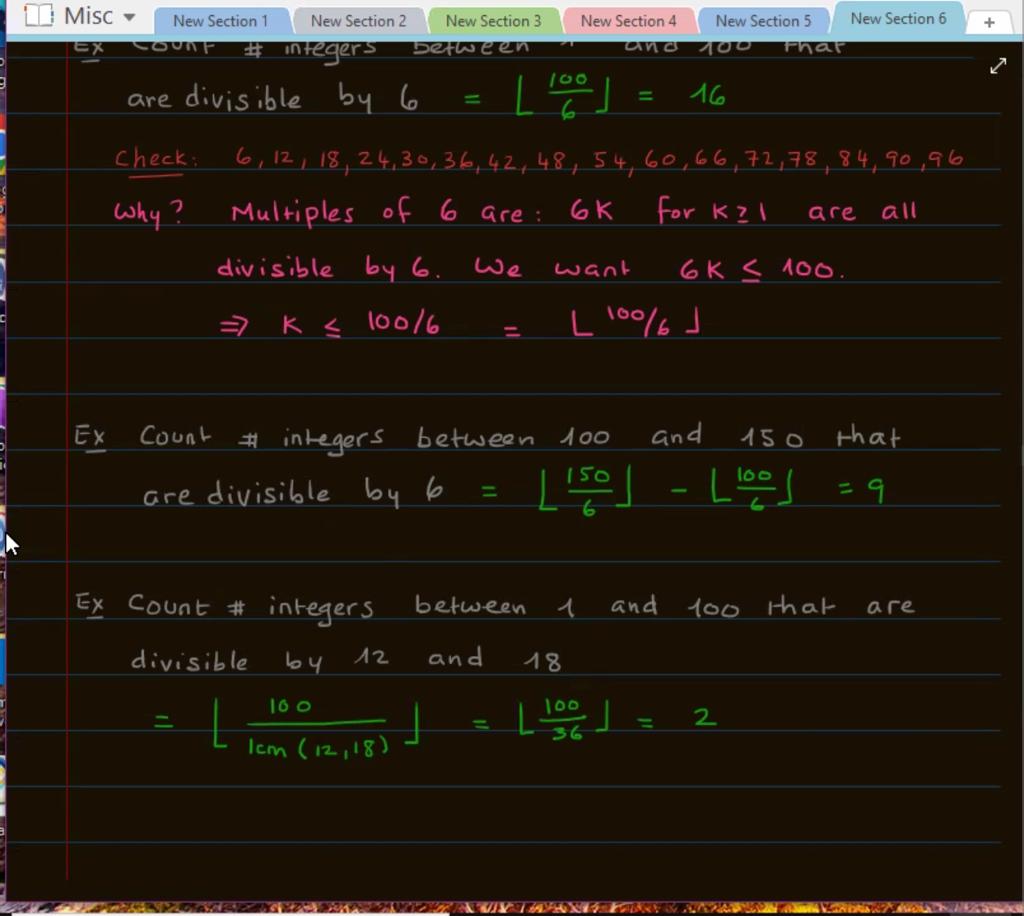 Misc
New Section 1
New Section 2
New Section 3
New Section 4
New Section 5
New Section 6
+
Ex Count # integers between 1 and 100 that
are divisible by 6 = ⌊100/6⌋ = 16
Check: 6, 12, 18, 24, 30, 36, 42, 48, 54, 60, 66, 72, 78, 84, 90, 96
Why? Multiples of 6 are: 6K for K ≥ 1 are all
divisible by 6. We want 6K ≤ 100.
⇒ K ≤ 100/6 = ⌊100/6⌋
Ex Count # integers between 100 and 150 that
are divisible by 6 = ⌊150/6⌋ - ⌊100/6⌋ = 9
Ex Count # integers between 1 and 100 that are
divisible by 12 and 18
= ⌊100/lcm(12,18)⌋ = ⌊100/36⌋ = 2